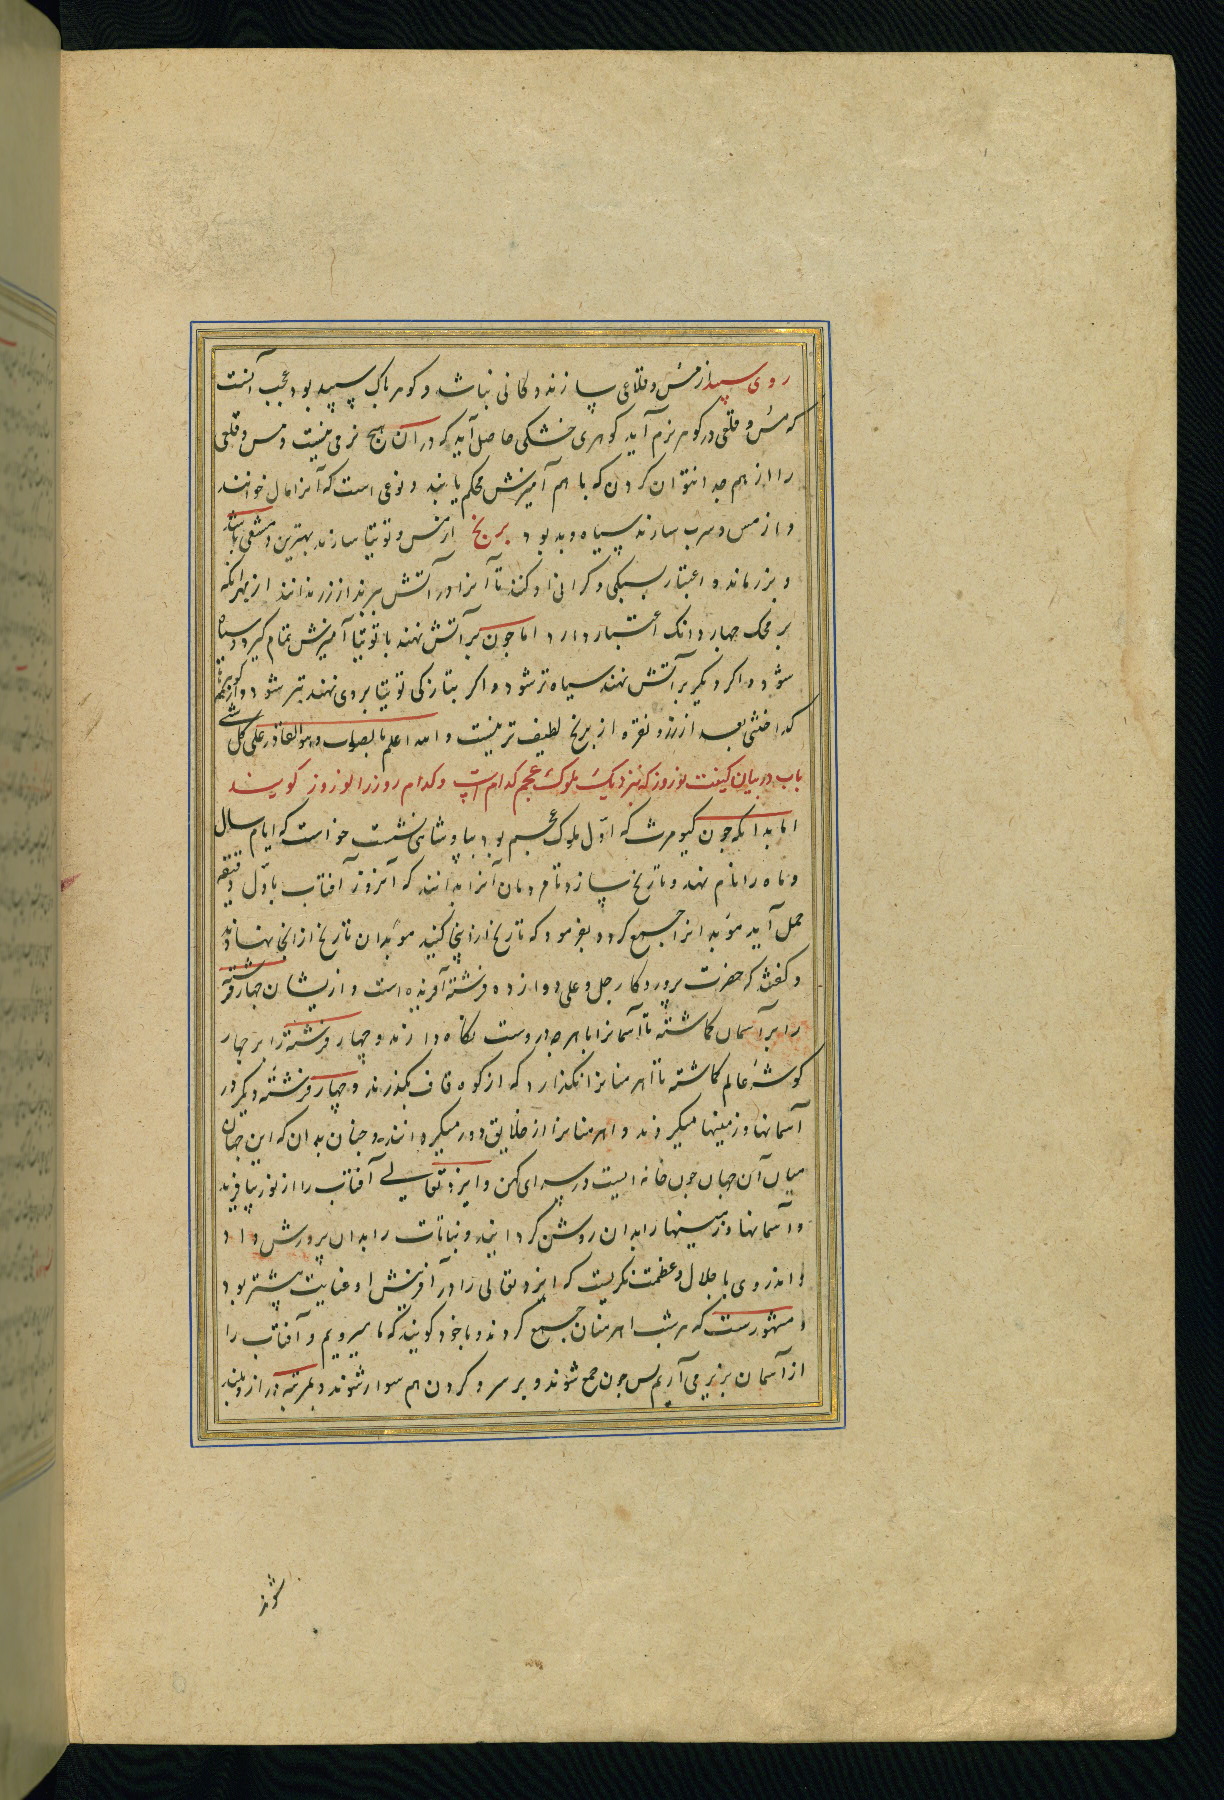 روی سپید از مس و قلاعی سازند و کانی نباشد و کوهر پاک سپید بود عجب آنست
که مس و قلعی دو کوهر نرم آید کوهری خشکی حاصل آید که در آن هیچ نرمی نیست و مس و قلعی
را از هم جدا نتوان کردن که با هم آمیزش محکم یابند و نوعی است که آنرا مال خوانند
و از مس و سرب سازند سیاه و بد بود برنج از مس و توتیا سازند بهترین دمشقی باشد
و بزر ماند و اعتبار سبکی و کرانی او کنند تا آنرا در آتش نبرند از زر ندانند از بهر آنکه
بر محک چهار دانک اعتبار دارد اما چون بر آتش نهند با توتیا آمیزش تمام کیرد و سیاه
شود و اکر دیکر بر آتش نهند سیاه تر شود و اکر بتازکی توتیا بر وی نهند بتر شود و از کوهرهای
کداختنی بعد از زر و نقره از برنج لطیف تر نیست و الله اعلم بالصواب و هو القادر علی کل شی
باب در بیان کیفیت نوروز که نزدیک ملوک عجم کدام است و کدام روز را نوروز کویند
اما بدانکه چون کیومرث که اول ملوک عجم بود بپادشاهی نشست خواست که ایام سال
و ماه را نام نهد و تاریخ سازد تا مردمان آنرا بدانند که آنروز آفتاب باول دقیقه
حمل آید موبدانرا جمع کرد و بفرمود که تاریخ ازاینجا کنید موبدان تاریخ از آنجا نهادند
و کفتند که حضرت پروردکار جل و علی دوازده فرشته آفریده است و از یشان چهار فرشته
را بر آسمان کماشته تا آسمانرا با هر چه دروست نکاه دارند و چهار فرشته را بر چهار
کوشۀ عالم کماشته تا اهرمنانرا نکذارد که از کوه قاف بکذرند و چهار فرشته دیکر در
آسمانها و زمینها میکردند و اهرمنانرا از خلایق دور میکردانند و چنان بدان که این جهان
میان آن جهان چون خانه ایست در سرای کهن و ایزد تعالی آفتاب را از نور بیافرید
و آسمانها و زمینها را بدان روشن کردانید و نباتات را بدان پرورش داد
و اندر وی با جلال و عظمت نکریست که ایزد تعالی را در آفرینش او عنایت بیشتر بود
و مشهورست که هر شب اهرمنان جمع کردند و با خود کویند که ما میرویم و آفتاب را
از آسمان بزیر می آریم پس چون جمع شوند و بر سر و کردن هم سوار شوند و بمرتبه دراز و بلند
شوند